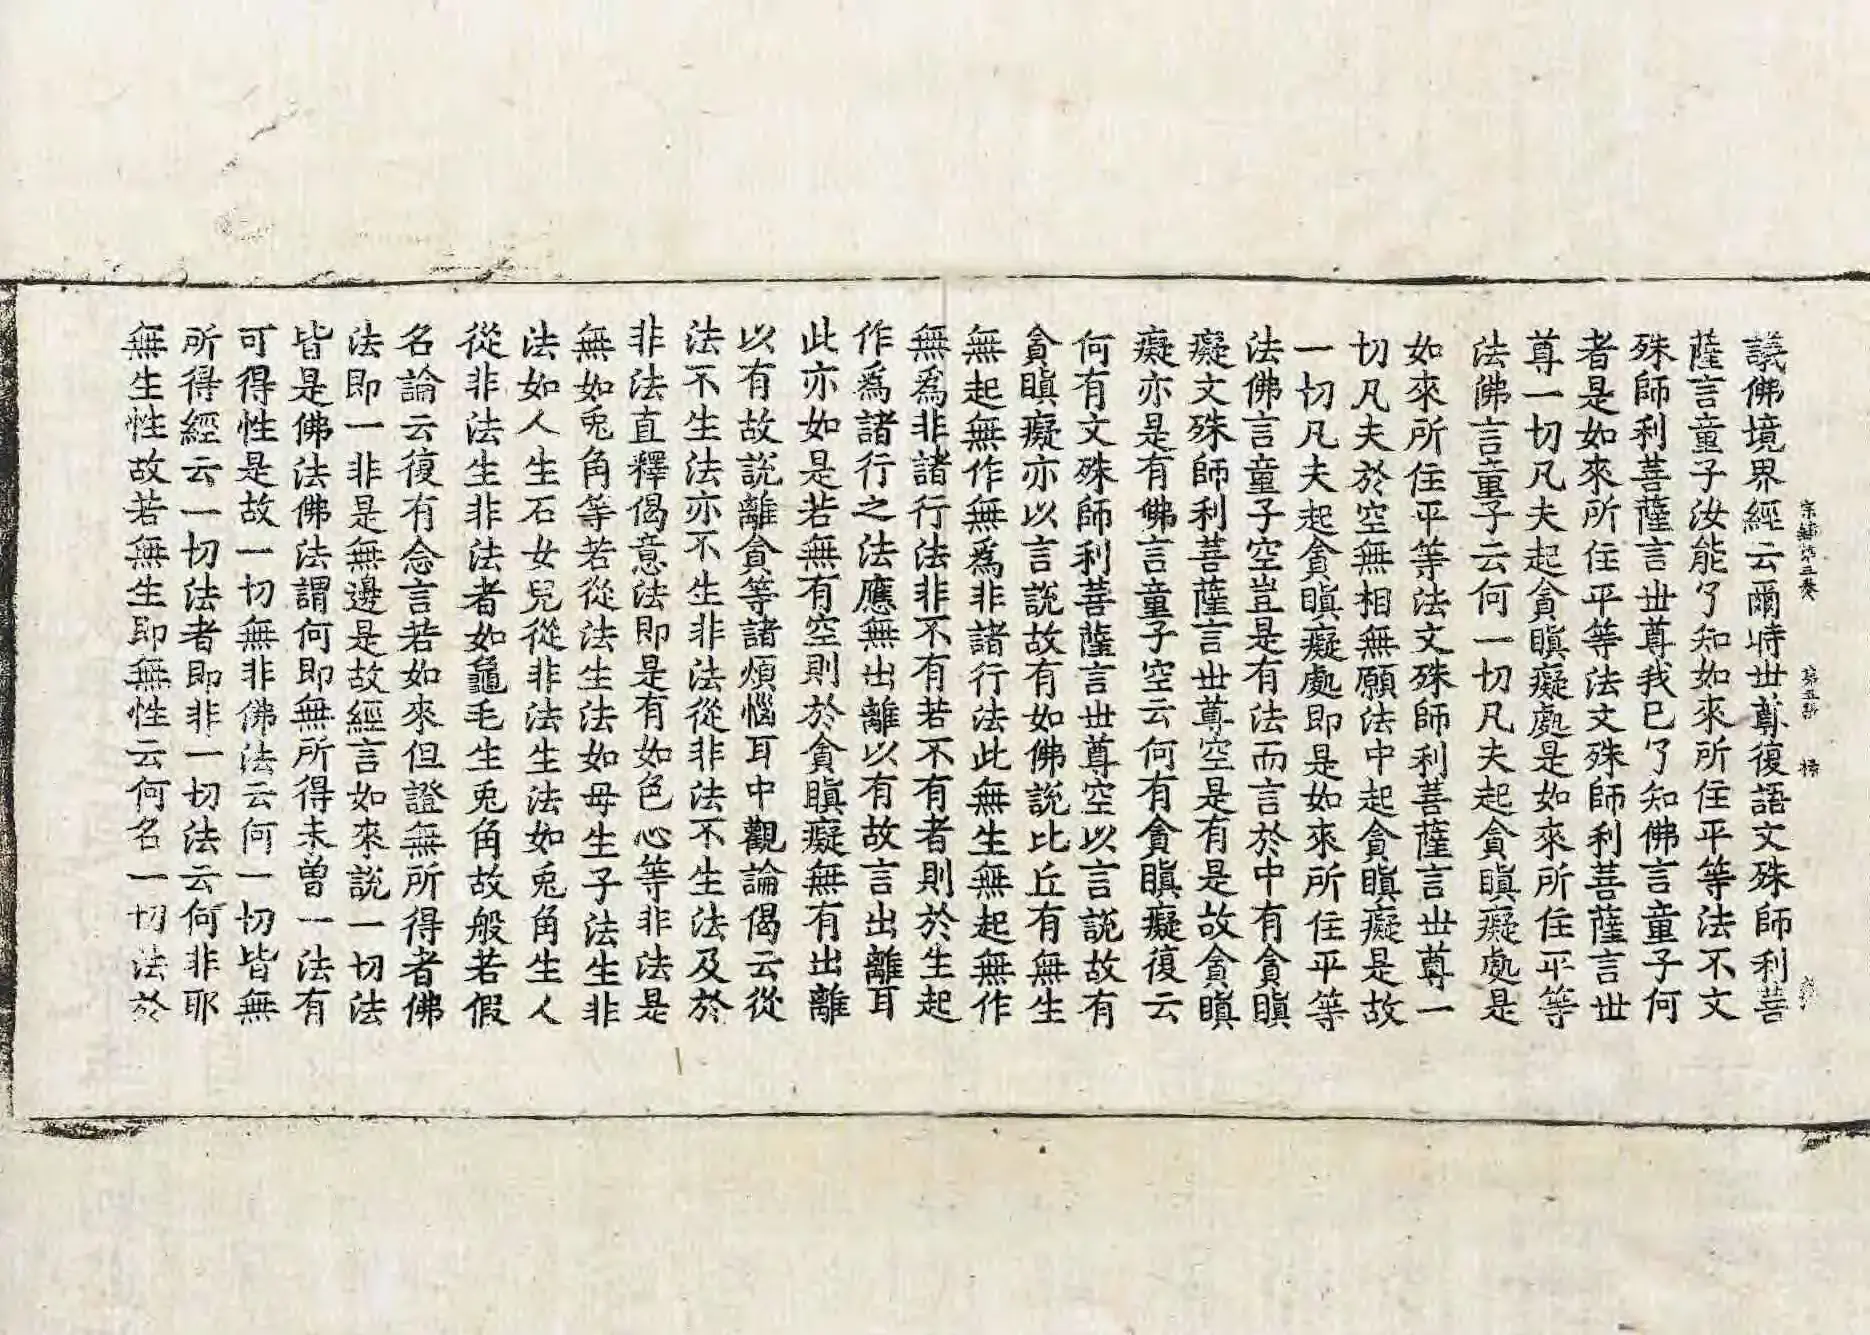 議佛境界經云爾時世尊復語文殊師利菩
薩言童子汝能了知如來所住平等法不文
殊師利菩薩言世尊我已了知佛言童子何
者是如來所住平等法文殊師利菩薩言世
尊一切凡夫起貪瞋癡處是如來所住平等
法佛言童子云何一切凡夫起貪瞋癡處是
如來所住平等法文殊師利菩薩言世尊一
切凡夫於空無相無願法中起貪瞋癡是故
一切凡夫起貪瞋癡處即是如來所住平等
法佛言童子空豈是有法而言於中有貪瞋
癡文殊師利菩薩言世尊空是有是故貪瞋
癡亦是有佛言童子空云何有貪瞋癡復云
何有文殊師利菩薩言世尊空以言說故有
貪瞋癡亦以言說故有如佛說比丘有無生
無起無作無爲非諸行法此無生無起無作
無爲非諸行法非不有若不有者則於生起
作爲諸行之法應無出離以有故言出離耳
此亦如是若無有空則於貪瞋癡無有出離
以有故說離貪等諸煩惱耳中觀論偈云從
法不生法亦不生非法從非法不生法及於
非法直釋偈意法即是有如色心等非法是
無如兎角等若從法生法如母生子法生非
法如人生石女兒從非法生法如兎角生人
從非法生非法者如龜毛生兎角故般若假
名論云復有念言若如來但證無所得者佛
法即一非是無邊是故經言如來說一切法
皆是佛法佛法謂何即無所得未曾一法有
可得性是故一切無非佛法云何一切皆無
所得經云一切法者即非一切法云何非耶
無生性故若無生即無性云何名一切法於